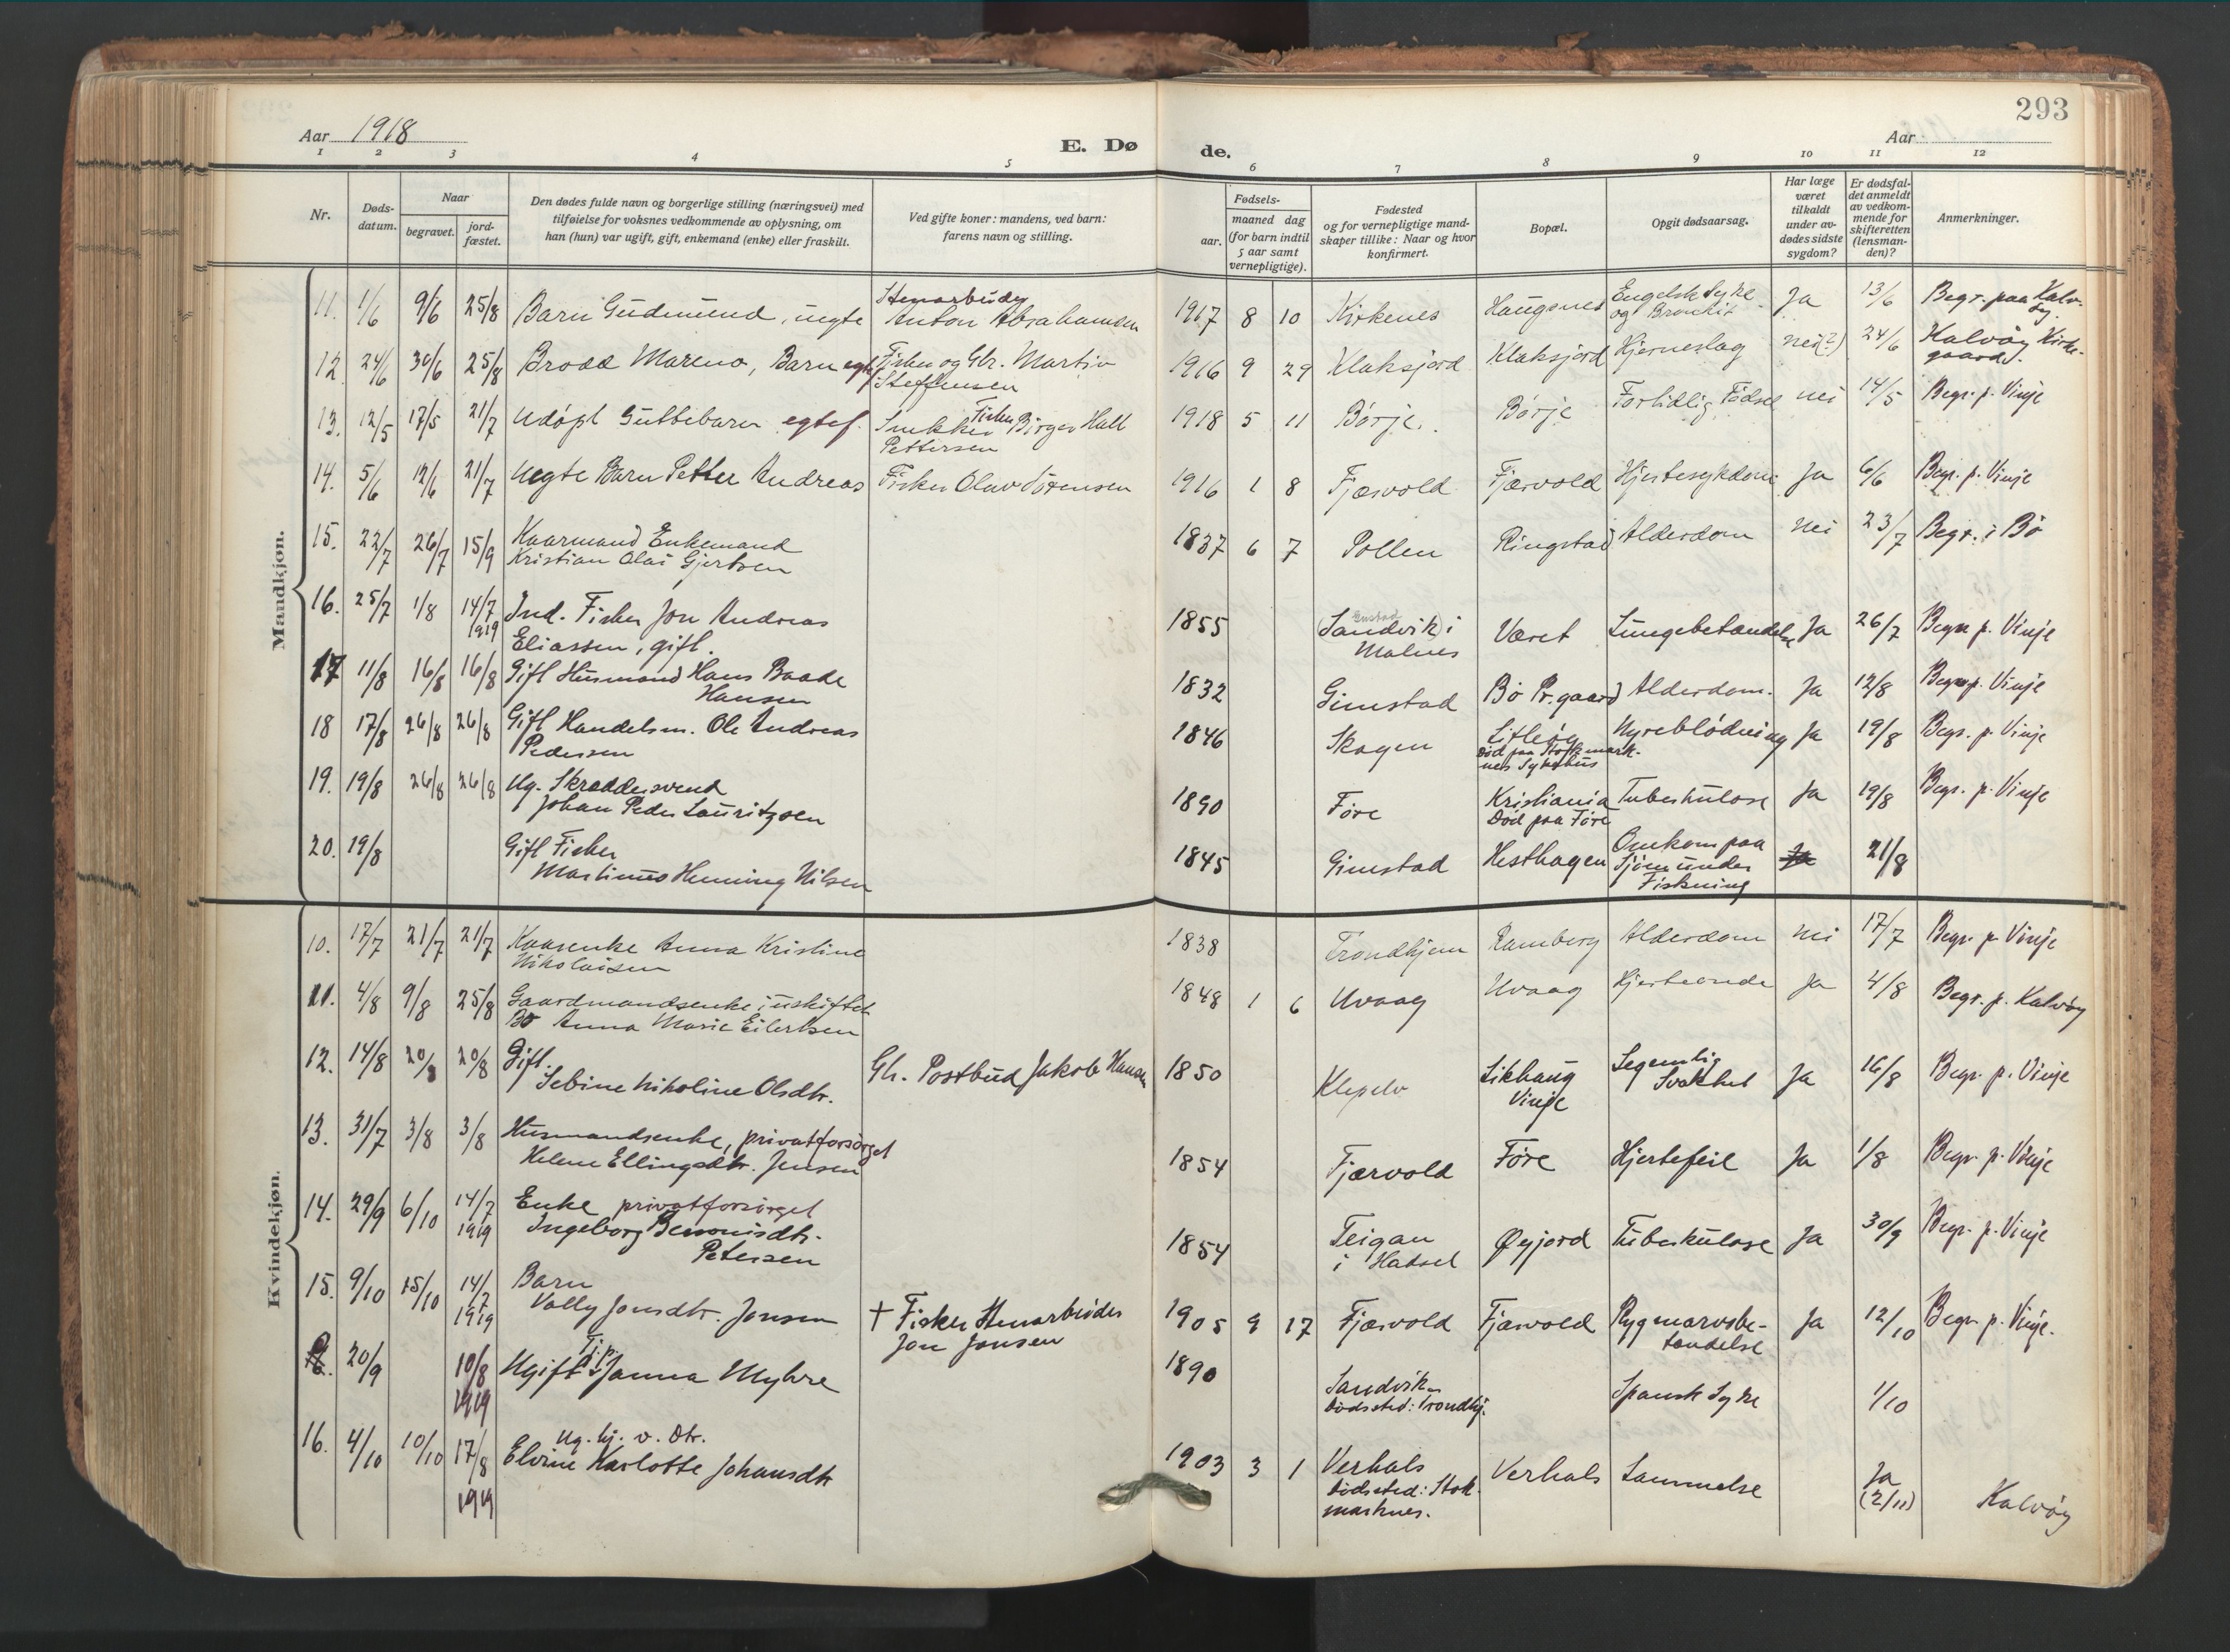 293
Aar 1918
E. Dø
de.
Aar
1 2 3 4 5 6 7 8 9 10 11 12
Nr.
Døds-
datum.
Naar
begravet.
jord-
fæstet.
Den dødes fulde navn og borgerlige stilling (næringsvei) med
tilføielse for voksnes vedkommende av oplysning, om
han (hun) var ugift, gift, enkemand (enke) eller fraskilt.
Ved gifte koner: mandens, ved barn:
farens navn og stilling.
Fødsels-
aar.
maaned dag
(for barn indtil
5 aar samt
vernepligtige).
Fødested
og for vernepligtige mand-
skaper tillike: Naar og hvor
konfirmert.
Bopæl.
Opgit dødsaarsag.
Har læge
været
tilkaldt
under av-
dødes sidste
sygdom?
Er dødsfal-
det anmeldt
av vedkom-
mende for
skifteretten
(lensman-
den)?
Anmerkninger.
Mandkjøn.
11. 1/6 9/6 25/8 Barn Gudmund, uegte Stenarbeider Anton Abrahamsen 1917 8 10 Kirkenes Haugsnes Engelsk Syke og Bronkit Ja 13/6 Begr. paa Kalv-
øy.
12. 24/6 30/6 25/8 Brodd Mareno, Barn egtef. Fisker og Gbr. Martin 1916 9 29 Klaksjord Klaksjord Hjerneslag nei(?) 24/6 Kalvøy Kirke-
Steffensen gaard.
13. 12/5 17/5 21/7 Udøpt Guttebarn egtef. Snekker Fisker Birger Hall 1918 5 11 Børje. Børje Fortidlig Fødsel nei 14/5 Begr. p. Vinje
Pettersen
14. 5/6 12/6 21/7 Uegte Barn Petter Andreas Fisker Olav Sørensen 1916 1 8 Fjærvold Fjærvold Hjertesykdom Ja 6/6 Begr. p. Vinje
15. 22/7 26/7 15/9 Kaarmand Enkemand 1837 6 7 Pollen Ringstad Alderdom nei 23/7 Begr. i Bø
Kristian Olai Gjertsen
16. 25/7 1/8 14/7 1919 Ind. Fisker Jon Andreas 1855 (Sandvik) i Enstad Været Lungebetændelse Ja 26/7 Begr. p. Vinje
Eliassen, gift. Malnes
17 11/8 16/8 16/8 Gift Husmand Hans Baade 1832 Gimstad Bø Pr.gaard Alderdom. Ja 12/8 Begr. p. Vinje
Hansen
18 17/8 26/8 26/8 Gift Handelsm. Ole Andreas 1846 Skagen Litløy Nyreblødning Ja 19/8 Begr. p. Vinje
Pedersen Død paa Stokmark-
nes Sykehus
19. 19/8 26/8 26/8 Ug. Skræddersvend 1890 Føre Kristiania Tuberkulose Ja 19/8 Begr. p. Vinje
Johan Peder Lauritzsen Død paa Føre
20. 19/8 Gift Fisker 1845 Gimstad Hesthagen Omkom paa Ja 21/8
Martinus Henning Nilsen Sjøen under
Fiskning
Kvindekjøn.
10. 17/7 21/7 21/7 Kaarenke Anna Kristine 1838 Trondhjem Ramberg Alderdom nei 17/7 Begr. p. Vinje
Nikolaisen
11. 4/8 9/8 25/8 Gaardmandsenke i uskiftet 1848 1 6 Uvaag Uvaag Hjerteonde Ja 4/8 Begr. p. Kalvøy
Bo Anna Marie Eilertsen
12. 14/8 20/8 20/8 Gift. Gb. Postbud Jakob Hansen 1850 Likhaug Legemlig Ja 16/8 Begr. p. Vinje
Sebine Nikoline Olsdtr. Vinje Svakhet
13. 31/7 3/8 3/8 Husmandsenke, privatforsørget 1854 Fjærvold Føre Hjertefeil Ja 1/8 Begr. p. Vinje
Helene Ellingsdtr. Jensen
14. 29/9 6/10 14/7 1919 Enke privatforsørget 1854 Teigan Øyjord Tuberkulose Ja 30/9 Begr. p. Vinje
Ingeborg Benonisdtr. i Hadsel
Petersen
15. 9/10 15/10 14/7 1919 Barn + Fisker Stenarbeider 1905 9 17 Fjærvold Fjærvold Rygmarvsbe- Ja 12/10 Begr. p. Vinje.
Vally Jonsdtr. Jonsen Jon Jonsen tændelse
20/9 10/8 1919 Ugift Tj.p. Janna Myhre 1890 Sandvik Spansk Syke 1/10
Dødssted: Trondhj.
16. 4/10 10/10 17/8 1919 Ug. hj. v. Dtr. 1903 3 1 Verhals Verhals Lammelse Ja
Elvine Karlotte Johansdtr Dødssted: Stok- (2/11) Kalvøy
marknes.